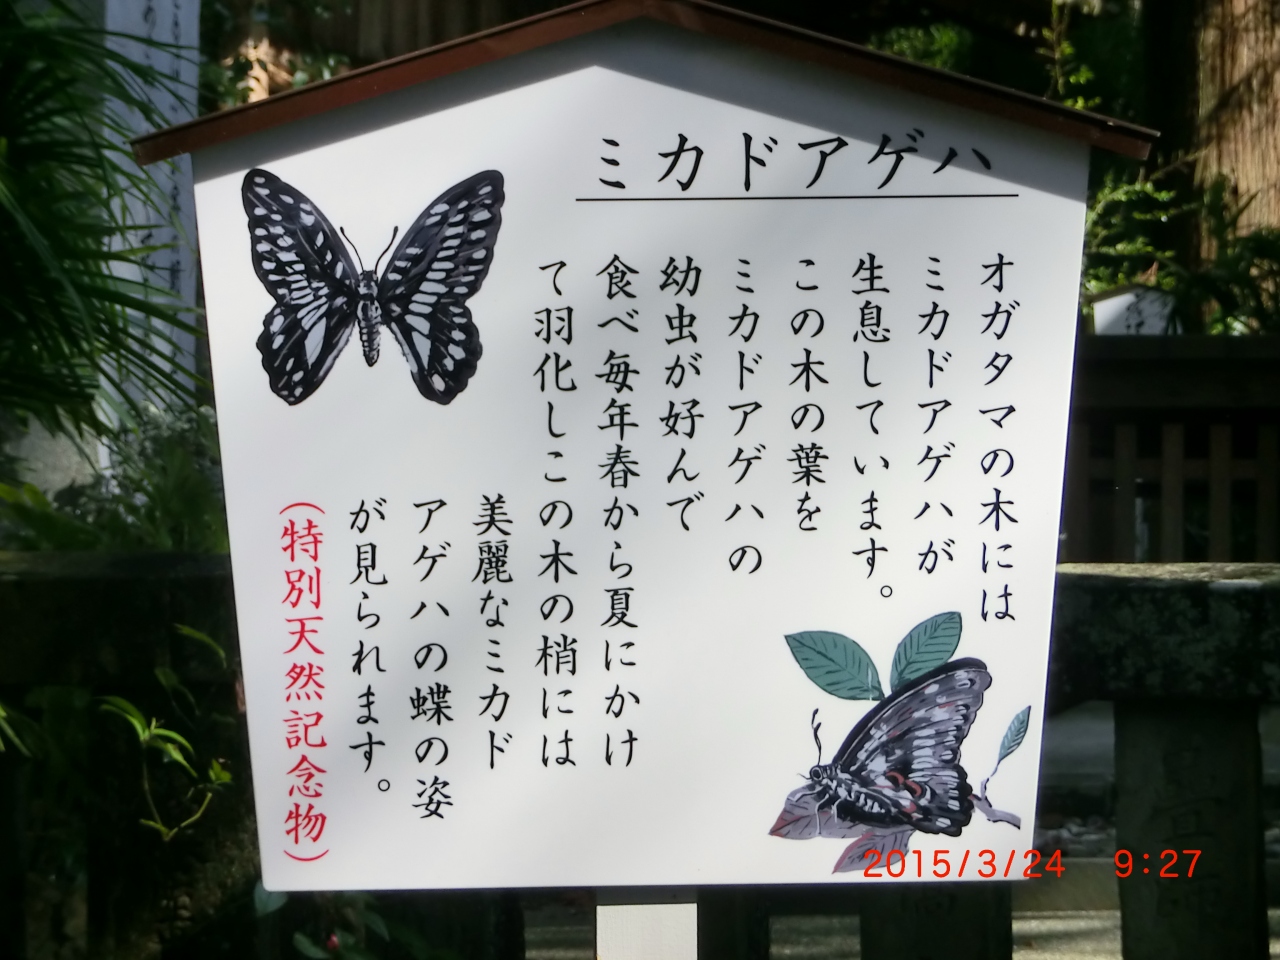 ミカドアゲハ
オガタマの木には
ミカドアゲハが
生息しています。
この木の葉を
ミカドアゲハの
幼虫が好んで
食べ毎年春から夏にかけ
て羽化しこの木の梢には
美麗なミカド
アゲハの蝶の姿
が見られます。
(特別天然記念物)
2015/3/24 9:27